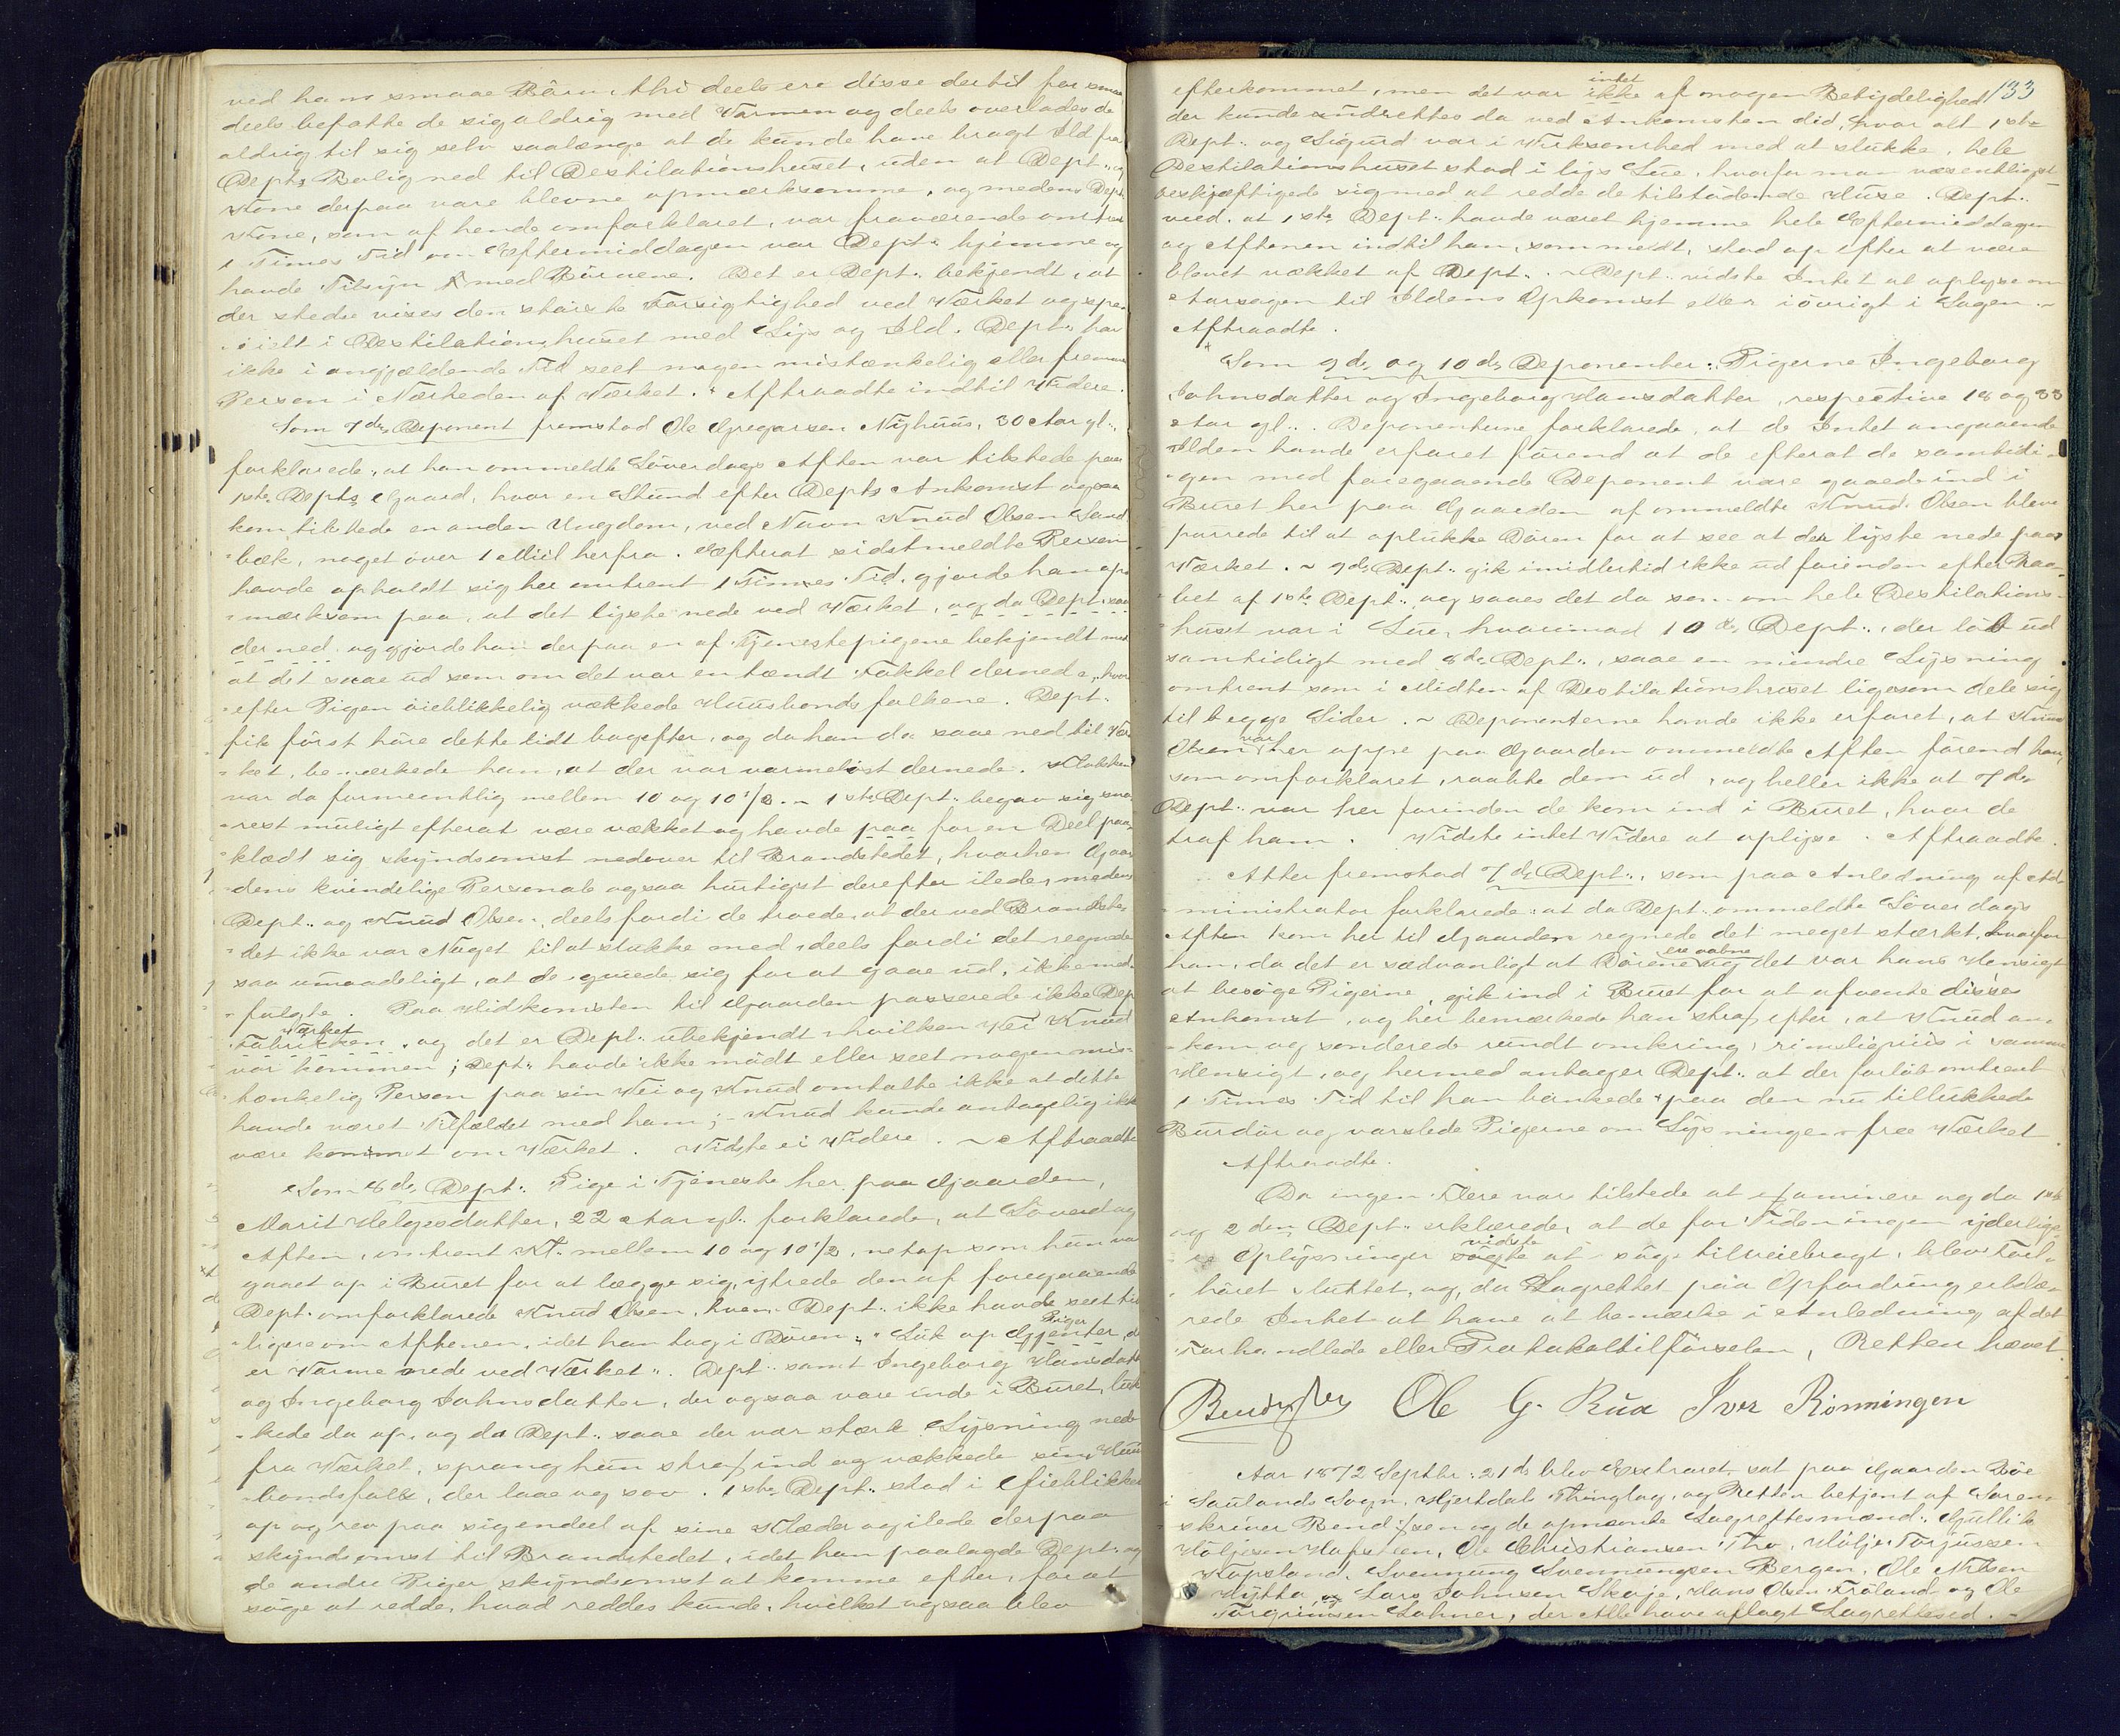 ved hans smaae Börn, thi deels ere disse dertil for smaa
deels befatte de sig aldrig med Varmen og deels overlades de
aldrig til sig selv saalænge at de kunde have bragt Ild fra
Depts Bolig ned til Destilationshuset, uden at Dept. og
Kone derpaa vare blevne opmærksomme, og medens Depts
Kone, som af hende omforklaret, var fraværende omtrent
1 Times Tid om Eftermiddagen var Dept. hjemme og
havde Tilsyn med Börnene. Det er Dept. bekjendt, at
der stedse vises den störste Forsigtighed ved Værket og spe-
-cielt i Destilationshuset med Lys og Ild. Dept. har
ikke i angjældende Tid seet nogen mistænkelig eller fremmed
Person i Nærheden af Værket. Aftraadte indtil Videre.
Som 7de Deponent fremstod Ole Gregarsen Nyhuus, 30 Aar gl.,
forklarede, at han ommeldte Löverdags Aften var tilstede paa
1ste Depts Gaard, hvor en Stund efter Depts Ankomst ogsaa
kom tilstede en anden Ungdom, ved Navn Knud Olsen Sand-
-bæk, noget over 1 Miil herfra. Efterat sidstmeldte Person
havde opholdt sig her omtrent 1 Times Tid, gjorde han op-
-mærksom paa, at det lyste nede ved Værket, og da Dept. saa
der ned og gjorde han derpaa en af Tjenestepigene bekjendt med
at det saae ud som om det var en tændt Fakkel dernede, hvor-
-efter Pigen öieblikkelig vækkede Huusbondsfolkene. Dept.
fik först höre dette lidt bagefter, og da han da saae ned til Vær-
-ket, bemærkede han, at der var varmelöst dernede. Klokken
var da formeentlig mellem 10 og 10½. ~ 1ste Dept. begav sig sna-
-rest muligt efterat være vækket og havde paa for en Deel paa-
klædt sig skyndsomst nedover til Brandstedet, hvorhen Gaar-
-dens kvindelige Personale ogsaa hurtigst derefter ilede, medens
Dept. og Knud Olsen, deels fordi de troede, at der ved Brandste-
-det ikke var Noget til at slukke med, deels fordi det regnede
saa umaadeligt, at de gruede sig for at gaae ud, ikke med-
-fulgte. Paa Hidkomsten til Gaarden passerede ikke Dept.
Værket
Fabrikken, og det er Dept. ubekjendt hvilken Vei Knud
var kommen; Dept. havde ikke mödt eller seet nogen mis-
tænkelig Person paa sin Vei og Knud omtalte ikke at dette
havde været Tilfældet med ham; Knud kunde antagelig ikke
være kommet om Værket. Vidste ei Videre. ~ Aftraadte
Som 8de Dept. Pige i Tjeneste her paa Gaarden,
Marit Helgesdatter, 22 Aar gl. forklarede, at Löverdag
Aften, omtrent Kl. mellem 10 og 10½, netop som hun var
gaaet op i Buret for at lægge sig, ytrede den af foregaaende
Dept. omforklarede Knud Olsen, hvem Dept. ikke havde seet tid-
Piger
-ligere om Aftenen, idet han tog i Dören: "Luk op Gjenter, der
er Varme nede ved Værket". Dept. samt Ingeborg Hansdatter
og Ingeborg Johnsdatter, der ogsaa vare inde i Buret, luk-
-kede da op, og da Dept. saae der var stærk Lysning nede
fra Værket, sprang hun strax ind og vækkede sine Huus-
-bondsfolk, der laae og sov. 1ste Dept. stod i Öieblikket
op og rev paa sig endeel af sine Klæder og ilede derpaa
skyndsomst til Brandstedet, idet han paalagde Dept. og
de andre Piger skyndsomst at komme efter, for at
söge at redde, hvad reddes kunde, hvilket ogsaa blev
133
intet
efterkommet, men det var ikke af nogen Betydelighed
der kunde udrettes da ved Ankomsten did, hvor alt 1ste
Dept. og Sigurd var i Virksomhed med at slukke, hele
Destilationshuset stod i lys Lue, hvorfor man væsentligst
beskjæftigede sig med at redde de tilstödende Huse. Dept.
veed, at 1ste Dept. havde været hjemme hele Eftermiddagen
og Aftenen indtil han, som meldt, stod op efter at være
blevet vækket af Dept. ~ Dept. vidste Intet at oplyse om
Aarsagen til Ildens Opkomst eller iövrigt i Sagen. ~
Aftraadte.
Som 9de og 10de Deponenter: Pigerne Ingeborg
Johnsdatter og Ingeborg Hansdatter, respective 18 og 33
Aar gl. Deponenterne forklarede, at de Intet angaaende
Ilden havde erfaret förend at de efterat de samtidi-
-gen med foregaaende Deponent vare gaaede ind i
Buret her paa Gaarden af ommeldte Knud Olsen bleve
purrede til at oplukke Dören for at see at der lyste nede paa
Værket. ~ 9de Dept. gik imidlertid ikke ud forinden efter Raa-
-bet af 1ste Dept. og saaes det da som om hele Destilations-
huset var i Lue, hvorimod 10de Dept., der löb ud
samtidigt med 8de Dept., saae en mindre Lysning
omtrent som i Midten af Destilationshuset ligesom dele sig
til begge Sider. ~ Deponenterne havde ikke erfaret, at Knud
var
Olsen her oppe paa Gaarden ommeldte Aften förend han,
som omforklaret, raabte dem ud, og heller ikke at 7de
Dept. var her forinden de kom ind i Buret, hvor de
traf ham. Vidste intet Videre at oplyse. Aftraadte.
Atter fremstod 7de Dept., som paa Anledning af Ad-
-ministrator forklarede: at da Dept. ommeldte Löverdags
Aften kom her til Gaarden regnede det meget stærkt, hvorfor
ere aabne
han, da det er sædvanligt at Dörene og det var hans Hensigt
at besöge Pigerne, gik ind i Buret for at afvente disses
Ankomst, og her bemærkede han strax efter, at Knud an-
-kom og sonderede rundt omkring, rimeligviis i samme
Hensigt, og hermed antager Dept. at der forlöb omtrent
1 Times Tid til han bankede paa den nu tillukkede
Burdör og varslede Pigerne om Lysningen fra Værket.
Aftraadte.
Da ingen Flere var tilstede at examinere og da 1ste
og 2den Dept. erklærede, at de for Tiden ingen yderlige-
vidste
-re Oplysninger sögte at söge tilveiebragt, blev For-
-höret sluttet, og, da Lagrettet paa Opfordring erklæ-
rede Intet at have at bemærke i Anledning af det
Forhandlede eller Protokoltilförselen, Retten hævet.
Bendixen Ole G. Rua Iver Rönningen
Aar 1872 Septbr. 21de blev Extraret sat paa Gaarden Böe
i Saulands Sogn, Hjertdals Thinglag, og Retten betjent af Soren-
skriver Bendixen og de opnævnte Lagrettesmænd: Gullik
Höljesen Hafsteen, Ole Christiansen Tho, Hölje Torjussen
Kopsland, Svennung Svennungsen Bergen, Ole Nilsen
Hytta, og Lars Johnsen Skoje, Hans Olsen Fröland og Ole
Torgrimsen Lohner, der Alle have aflagt Lagretteseed. ~